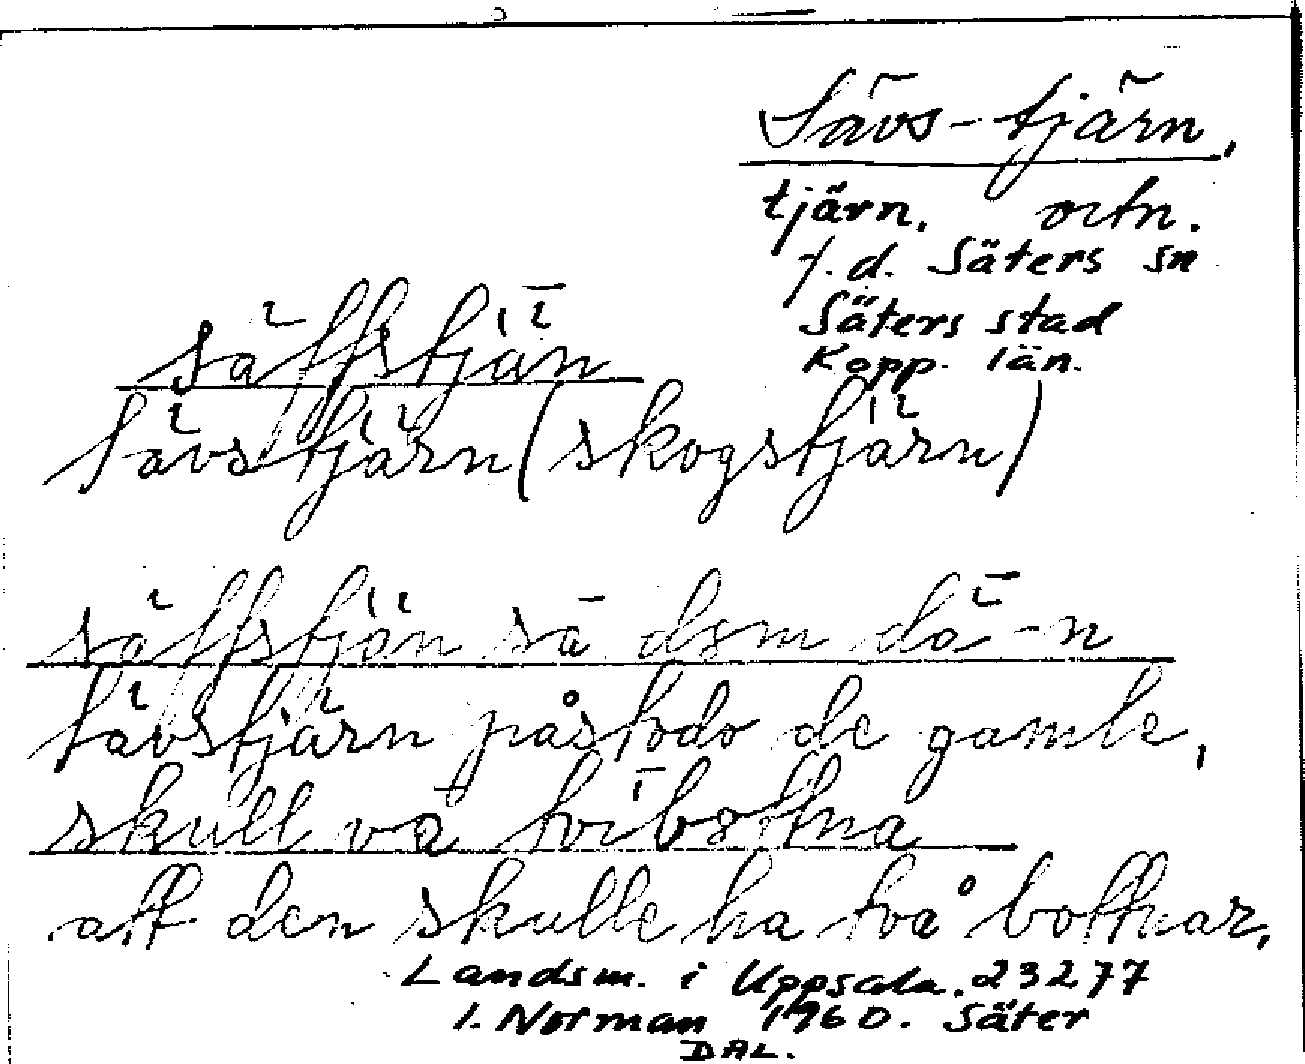 Sävs-tjärn,
tjärn. ortn.
f.d. Säters sn
Säters stad
Kopp. län.
säffstjän
Sävstjärn (skogstjärn)
säffstjän sä dom dä -n
Sävstjärn påstodo de gamle,
skull va tvibottna
att den skulle ha två bottnar.
Landsm. i Uppsala. 23277
I. Norman 1960. Säter
DAL.